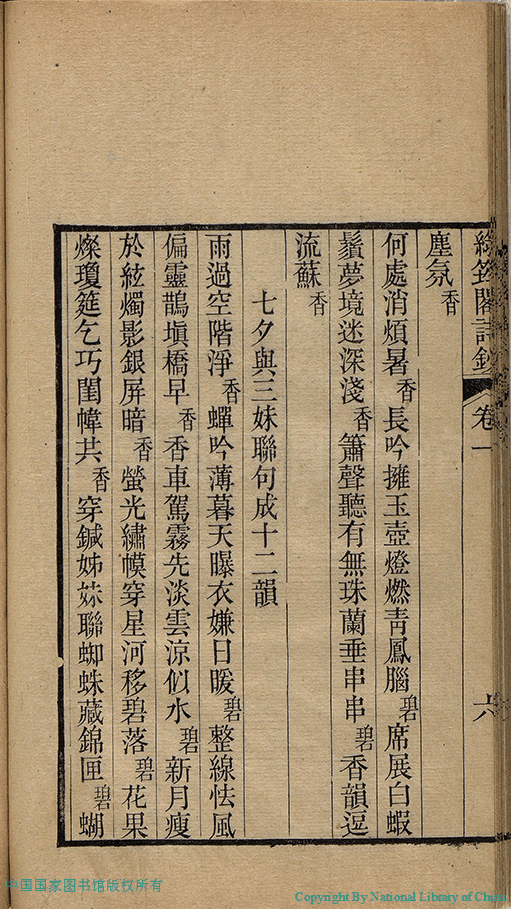 綠筠閣詩鈔 卷一 六
塵氛香
何處消煩暑香長吟擁玉壺燈燃青鳳腦碧席展白蝦
鬚夢境迷深淺香簫聲聽有無珠蘭垂串串碧香韻逗
流蘇香
七夕與三妹聯句成十二韻
雨過空階淨香蟬吟薄暮天曝衣嫌日暖碧整線怯風
偏靈鵲塡橋早香香車駕霧先淡雲涼似水碧新月瘦
於絃燭影銀屏暗香螢光繡幙穿星河移碧落碧花果
燦瓊筵乞巧閨幃共香穿鍼姊妹聯蜘蛛藏錦匣碧蝴
中国国家图书馆版权所有
Copyright By National Library of China